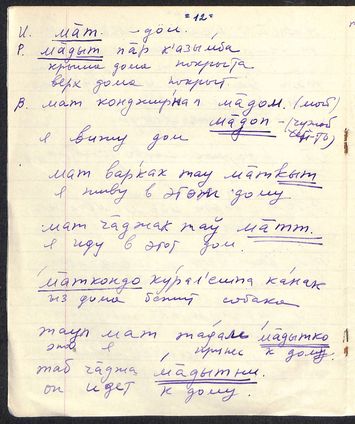 "12"
И. ма̄т. - дом.
Р. ма̄дыт па̄р к'азымба
крыша дома покрыта
верх дома покрыт
В. мат конджирнап ма̄дом. (мой)
ма̄доп - (чужой
я вижу дом
мат варкак тау ма̄ткыт
я живу в этом дому
мат ча̄джак таӯ ма̄тт.
я иду в этот дом.
ма̄ткондо кура̄л'емпа канак
из дома бежит собака
тауп мат ма̄дытко
это я к дому.
таб ча̄джа ма̄дытни.
он идет к дому.